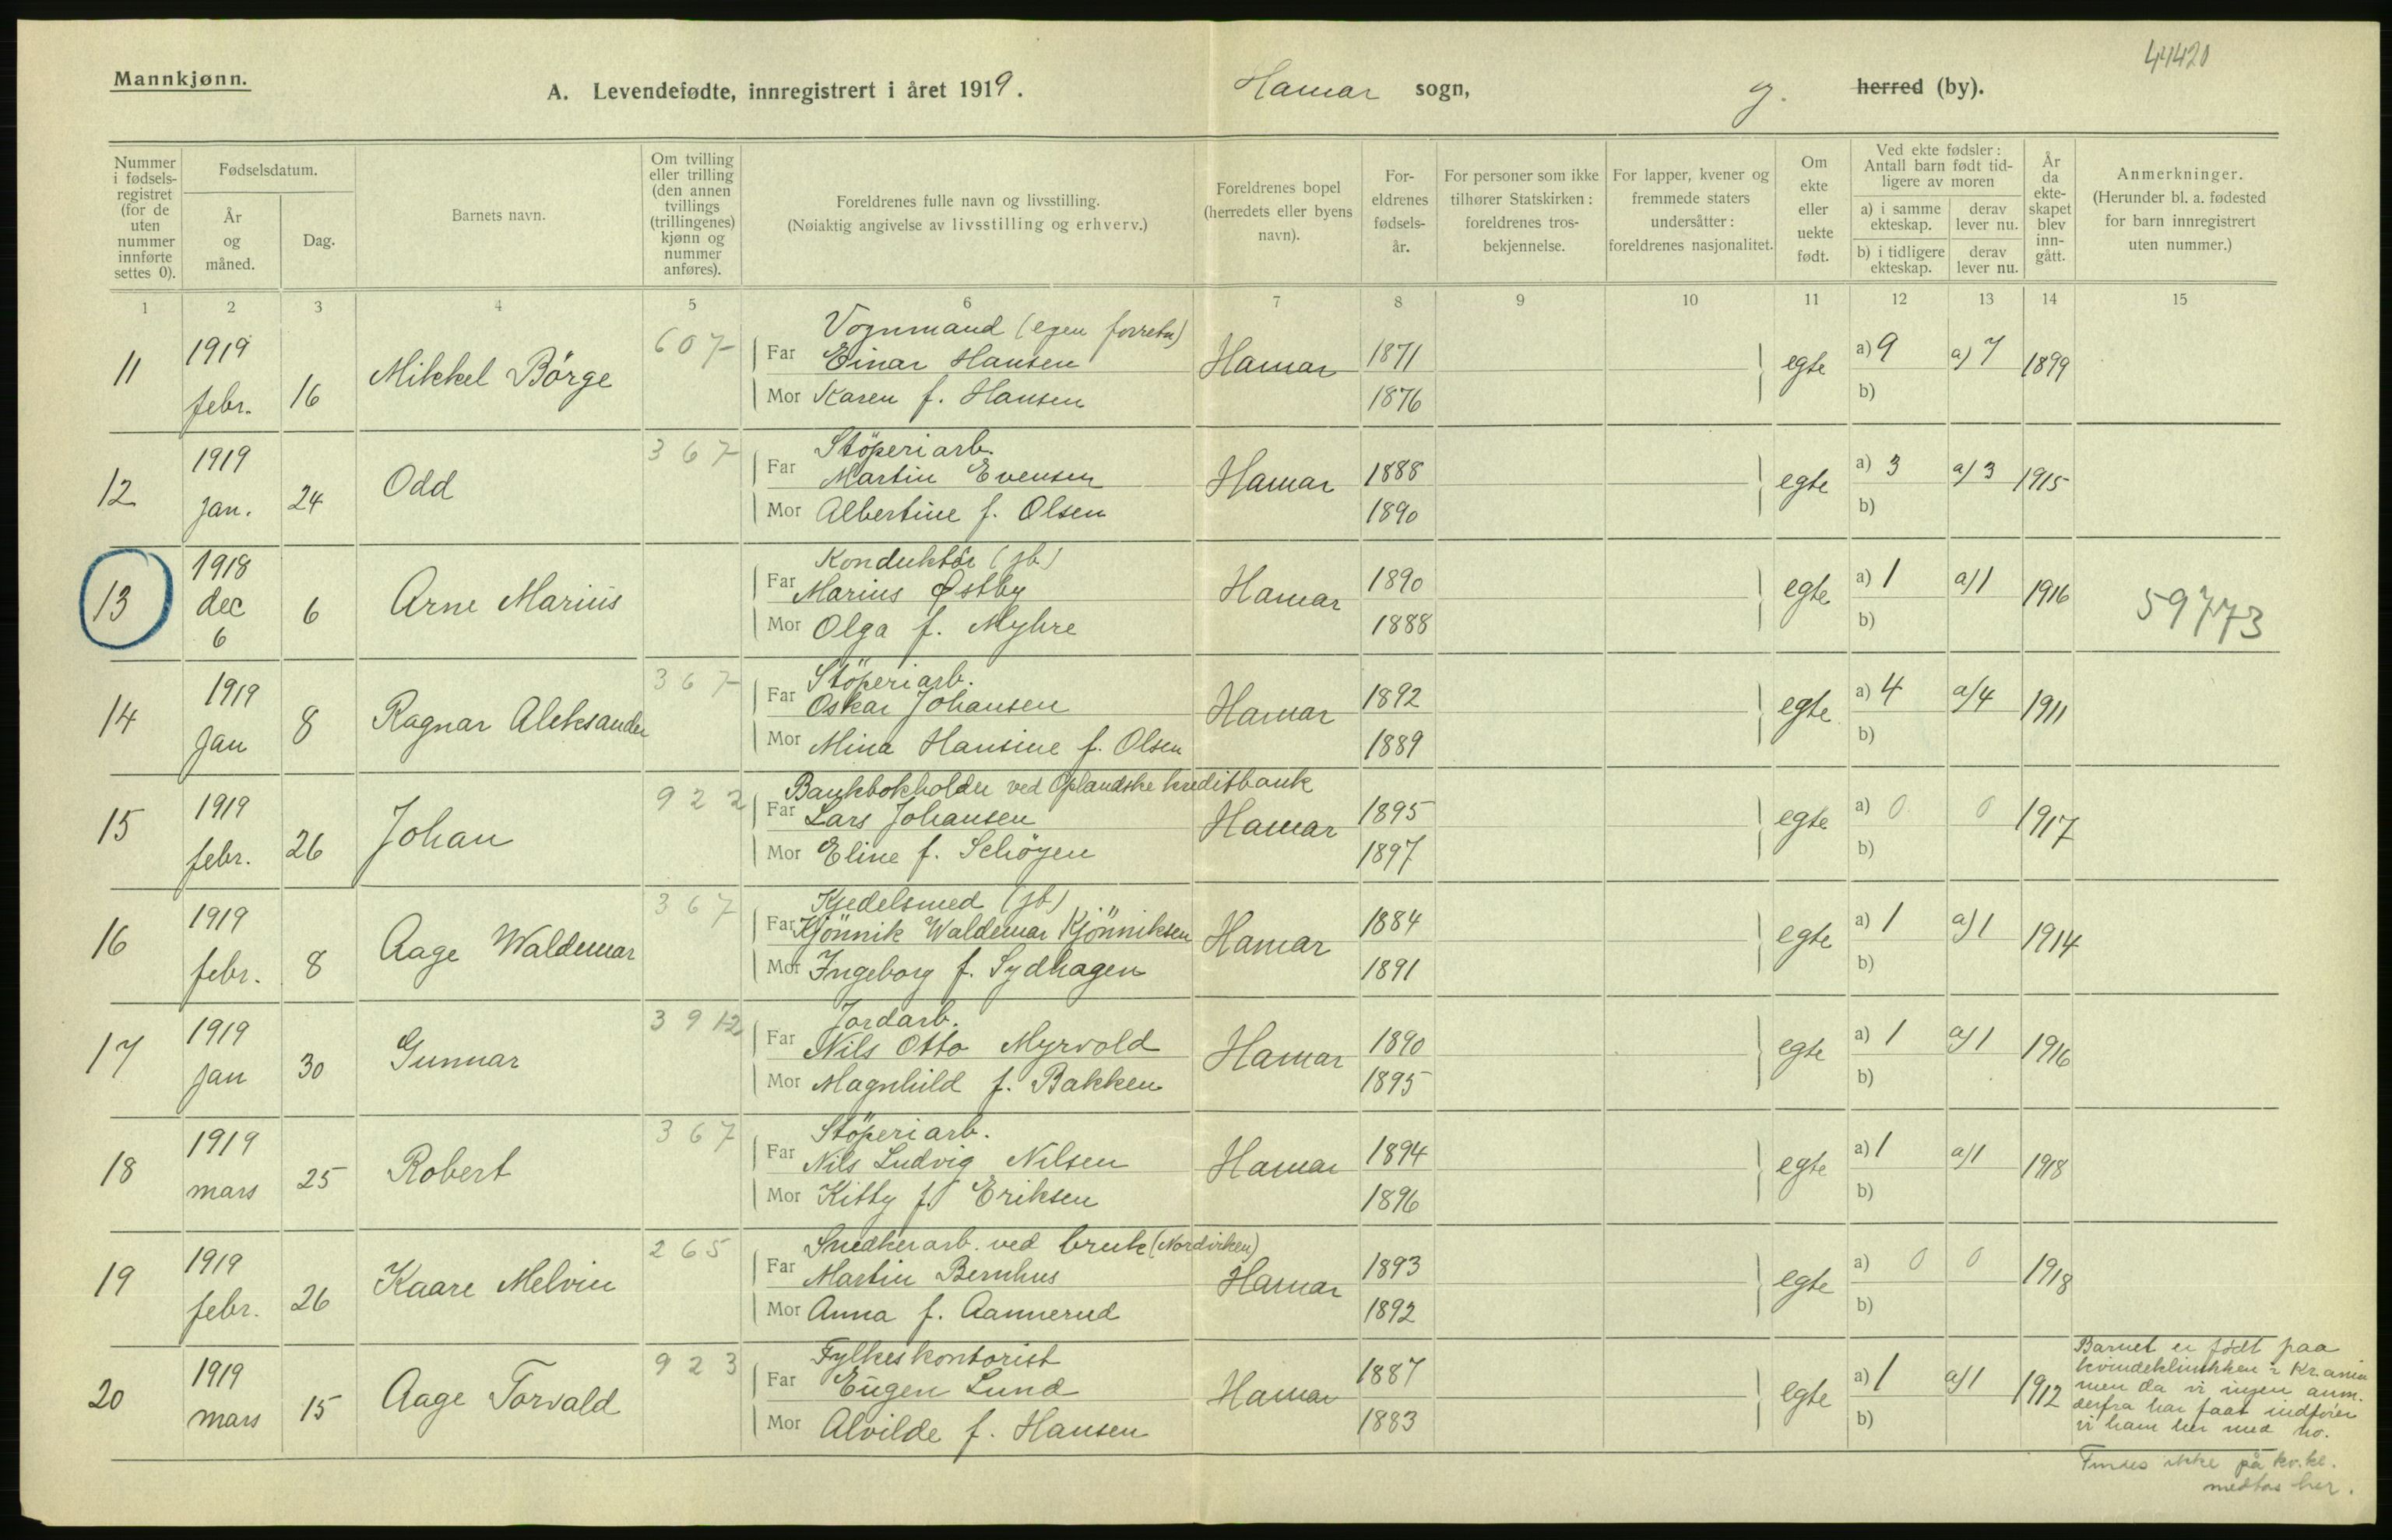 44420
Mannkjønn.
A. Levendefødte, innregistrert i året 1919.
Hamar sogn,
herred (by).
Nummer i fødsels-registret (for de uten nummer innførte settes 0).
Fødselsdatum.
År og måned.
Dag.
Barnets navn.
Om tvilling eller trilling (den annen tvillings (trillingenes) kjønn og nummer anføres).
Foreldrenes fulle navn og livsstilling.
(Nøiaktig angivelse av livsstilling og erhverv.)
Foreldrenes bopel (herredets eller byens navn).
For-eldrenes fødsels-år.
For personer som ikke tilhører Statskirken: foreldrenes tros-bekjennelse.
For lapper, kvener og fremmede staters undersåtter: foreldrenes nasjonalitet.
Om ekte eller uekte født.
Ved ekte fødsler: Antall barn født tid-ligere av moren
a) i samme ekteskap.
derav lever nu.
b) i tidligere ekteskap.
derav lever nu.
År da ekte-skapet blev inn-gått.
Anmerkninger.
(Herunder bl. a. fødested for barn innregistrert uten nummer.)
1 2 3 4 5 6 7 8 9 10 11 12 13 14 15
Vognmand (egen forretn)
11 1919 febr. 16 Mikkel Börge 607 Far Einar Hansen Hamar 1871 egte a) 9 a) 7 1899
Mor Karen f. Hansen 1876 b)
Stöperiarb.
12 1919 jan. 24 Odd 367 Far Martin Evensen Hamar 1888 egte a) 3 a) 3 1915
Mor Albertine f. Olsen 1890 b)
Konduktör (jb)
13 1918 dec 6 6 Arne Marius Far Marius Østby Hamar 1890 egte a) 1 a) 1 1916 59773
Mor Olga f. Myhre 1888 b)
Stöperiarb.
14 1919 Jan 8 Ragnar Aleksander 367 Far Oskar Johansen Hamar 1892 egte a) 4 a) 4 1911
Mor Mina Hansine f. Olsen 1889 b)
Bankbokholder ved Oplandske kreditbank
15 1919 febr. 26 Johan 922 Far Lars Johansen Hamar 1895 egte a) 0 0 1917
Mor Eline f. Schöyen 1897 b)
Kjedelsmed (jb)
16 1919 febr. 8 Aage Waldemar 367 Far Kjönnik Waldemar Kjönniksen Hamar 1884 egte a) 1 a) 1 1914
Mor Ingeborg f. Sydhagen 1891 b)
Jordarb.
17 1919 jan 30 Gunnar 3912 Far Nils Otto Myrvold Hamar 1890 egte a) 1 a) 1 1916
Mor Magnhild f. Bakken 1895 b)
Stöperiarb.
18 1919 mars 25 Robert 367 Far Nils Ludvig Nilsen Hamar 1894 egte a) 1 a) 1 1918
Mor Kitty f. Eriksen 1896 b)
Snedkerarb. ved bruk (Nordviken)
19 1919 febr. 26 Kaare Melvin 265 Far Martin Bernhus Hamar 1893 egte a) 0 0 1918
Mor Anna f. Aannerud 1892 b)
Fylkeskontorist
20 1919 mars 15 Aage Torvald 923 Far Eugen Lund Hamar 1887 egte a) 1 a) 1 1912
Mor Alvilde f. Hansen 1883 b)
Barnet er født paa
kvindeklinikken i Kr.ania
men da vi ingen anm.
derfra har faat indfører
vi ham her med no.
Findes ikke på kv.kl.
medtas her.